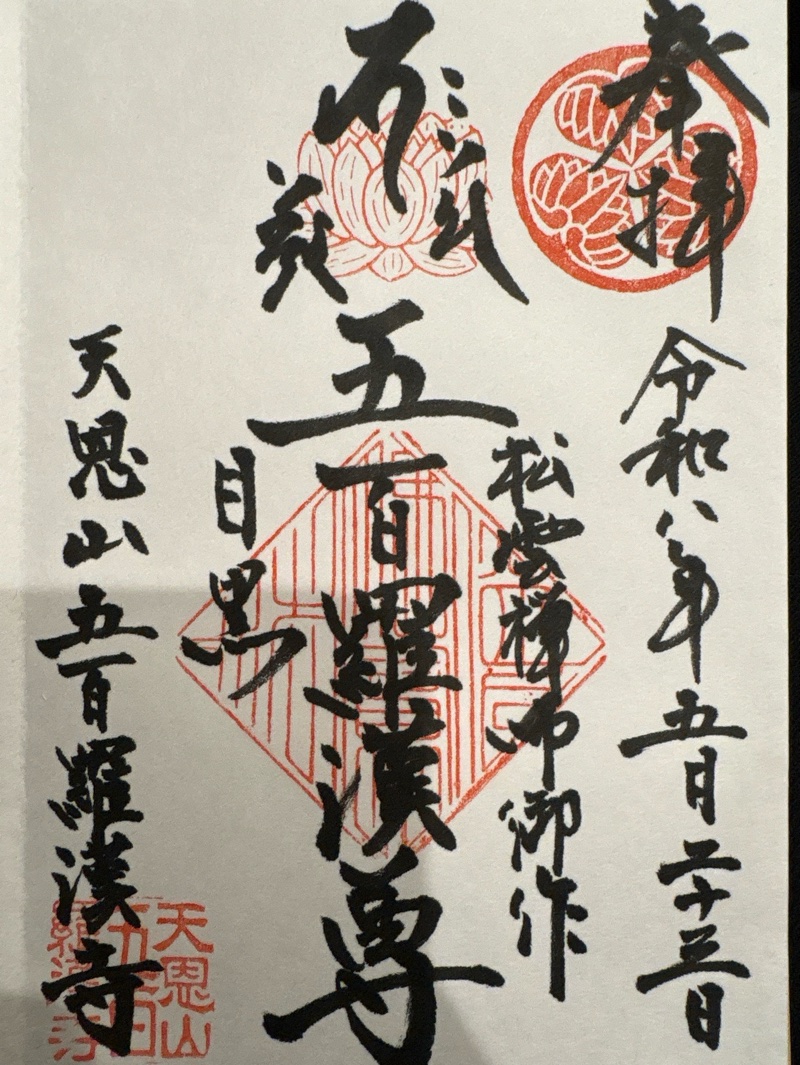 奉拝
令和八年五月二十三日
松雲禅師御作
五百羅漢尊
目黒
天恩山五百羅漢寺
天恩山
五百
羅漢寺